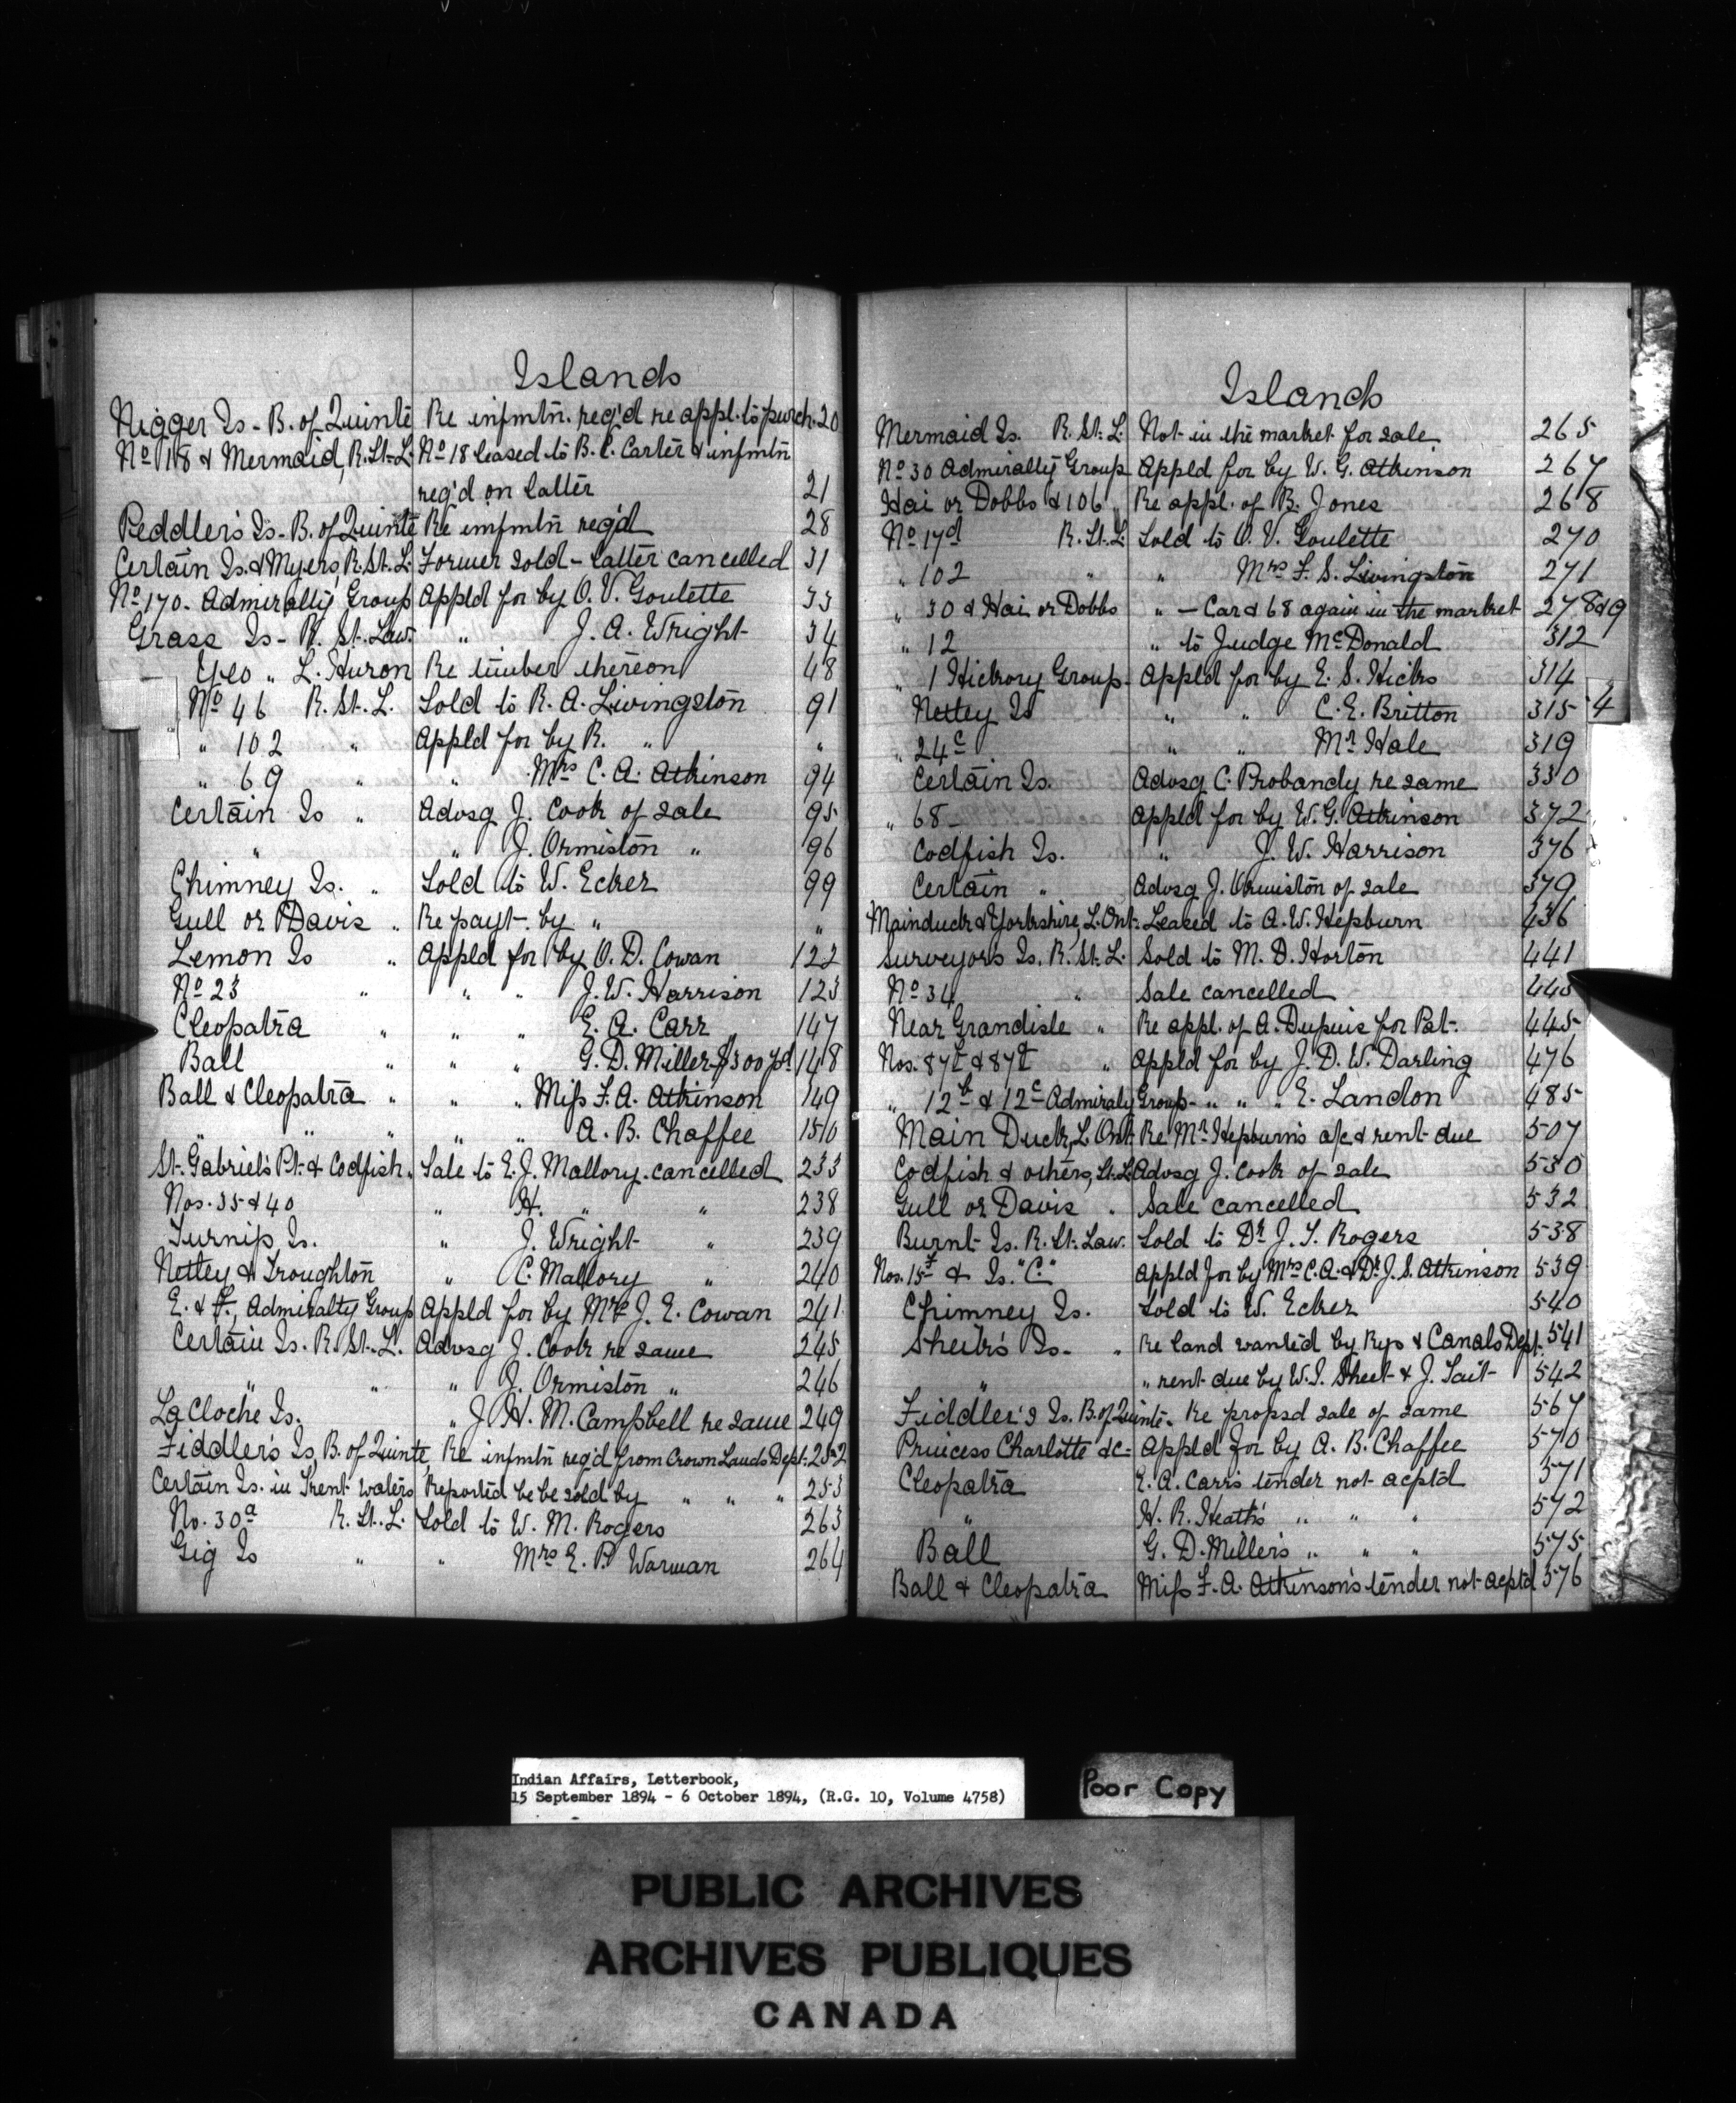 Islands
Nigger Is - B. of Quinte Re infmtn. req'd re appl. to purch. 20
No 18 & Mermaid, R. St. L. No 18 leased to B. C. Carter & infmtn
req'd on latter 21
Peddler's Is - B. of Quinte Re infmtn req'd 28
Certain Is. & Myers, R. St. L. Former sold - latter cancelled 31
No 170. Admiralty Group Appld for by O. V. Goulette 33
Grass Is - R. St. Law. " J. A. Wright 34
Yeo " L. Huron Re timber thereon 48
No 46 R. St. L. Sold to R. A. Livingston 91
" 102 " Appld for by R. " "
" 69 " " Mrs C. A. Atkinson 94
Certain Is " Advsg J. Cook of sale 95
" " J. Ormiston " 96
Chimney Is. " Sold to W. Ecker 99
Gull or Davis " Re payt. by " "
Lemon Is " Appld for by O. D. Cowan 122
No 23 " " " J. W. Harrison 123
Cleopatra " " " E. A. Carr 147
Ball " " " G. D. Miller $300 pd 148
Ball & Cleopatra " " " Miss F. A. Atkinson 149
" " " " " A. B. Chaffee 150
St. Gabriel's Pt. & Codfish " Sale to E. J. Mallory cancelled 233
Nos. 35 & 40 " H. " " 238
Turnip Is. " J. Wright " 239
Netley & Troughton " C. Mallory " 240
E. & F., Admiralty Group Appld for by Mrs J. E. Cowan 241
Certain Is. R. St. L. Advsg J. Cook re same 245
" " " J. Ormiston " 246
La Cloche Is. " J. H. M. Campbell re same 249
Fiddler's Is, B. of Quinte, Re infmtn req'd from Crown Lands Dept. 252
Certain Is. in Trent waters Reported be be sold by " " " 253
No. 30a R. St. L. Sold to W. M. Rogers 263
Gig Is " " Mrs E. P. Warman 264
Islands
Mermaid Is. R. St. L. Not in the market for sale 265
No 30 Admiralty Group Appld for by W. G. Atkinson 267
Hai or Dobbs & 106 " Re appl. of B. Jones 268
No 17d R. St. L. Sold to O. V. Goulette 270
" 102 " " Mrs F. S. Livingston 271
" 30 & Hai or Dobbs " - Car & 68 again in the market 278&9
" 12 " to Judge McDonald 312
" 1 Hickory Group Appld for by E. S. Hicks 314
Netley Is " " C. E. Britton 315 4
" 24c " " Mr Hale 319
Certain Is. Advsg C. Probandy re same 330
" 68 - Appld for by W. G. Atkinson 372
Codfish Is. " J. W. Harrison 376
Certain " Advsg J. Ormiston of sale 379
Mainduck & Yorkshire, L. Ont. Leased to A. W. Hepburn 436
Surveyor's Is. R. St. L. Sold to M. D. Horton 441
No 34 " Sale cancelled 443
Near Grandisle " Re appl. of A. Dupuis for Pat. 445
Nos. & " Appld for by J. D. W. Darling 476
" 12b & 12c Admiraly Group - " " " E. Landon 485
Main Duck, L. Ont. Re Mr Hepburn's a/c & rent due 507
Codfish & others, St. L. Advsg J. Cook of sale 530
Gull or Davis " Sale cancelled 532
Burnt Is. R. St. Law. Sold to Dr J. T. Rogers 538
Nos. 15f & Is. "C." Appld for by Mrs C. A. & Dr J. S. Atkinson 539
Chimney Is. Sold to W. Ecker 540
Sheik's Is. " Re land wanted by Rys & Canals Dept. 541
" " rent due by W. I. Sheet & J. Tait 542
Fiddler's Is. B. of Quinte. Re propsd sale of same 567
Princess Charlotte &c = Appld for by A. B. Chaffee 570
Cleopatra E. A. Carr's tender not acptd 571
" H. R. Heath's " " " 572
Ball G. D. Miller's " " " 575
Ball & Cleopatra Miss F. A. Atkinson's tender not acptd 576
Indian Affairs, Letterbook,
15 September 1894 - 6 October 1894, (R.G. 10, Volume 4758)
Poor Copy
PUBLIC ARCHIVES
ARCHIVES PUBLIQUES
CANADA